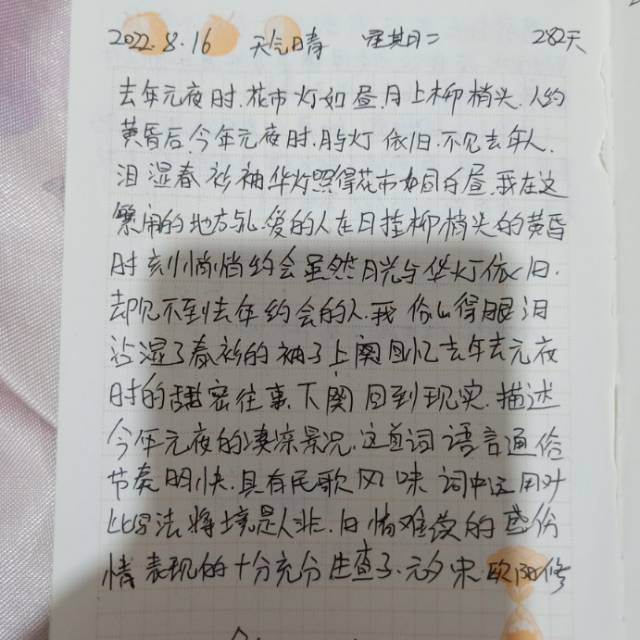 2022.8.16 天气晴 星期二 282天
去年元夜时.花市灯如昼.月上柳梢头.人约
黄昏后.今年元夜时.月与灯依旧.不见去年人.
泪湿春衫袖华灯照得花市如同白昼.我在这
繁闹的地方与心爱的人在月挂柳梢头的黄昏
时刻悄悄约会虽然月光与华灯依旧.
却见不到去年约会的人.我伤心得眼泪
沾湿了春衫的袖子上阕回忆去年去元夜
时的甜密往事.下阕回到现实.描述
今年元夜的凄凉景况.这首词语言通俗
节奏明快.具有民歌风味词中运用对
比写法将境是人非.旧情难做的感伤
情表现的十分充分生查子.元夕宋欧阳修